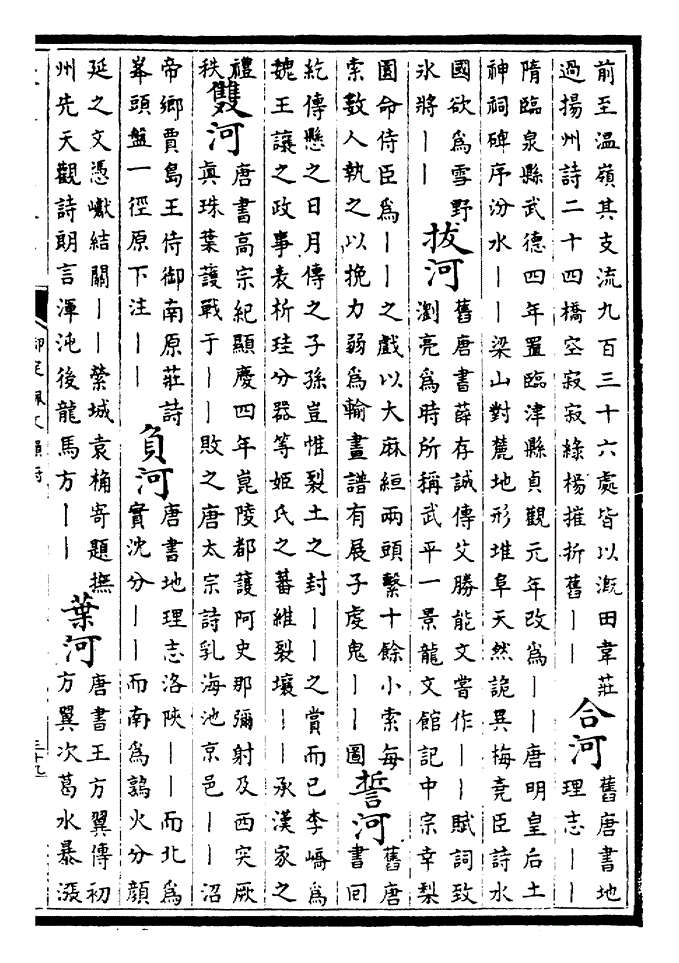 前至温嶺其支流九百三十六處皆以溉田韋莊
過揚州詩二十四橋空寂寂綠楊摧折舊丨丨
合河
舊唐書地
理志丨丨
隋臨泉縣武德四年置臨津縣貞觀元年改為丨丨唐明皇后土
神祠碑序汾水丨丨梁山對麓地形堆阜天然詭異梅堯臣詩水
國欲為雪野
氷將丨丨
拔河
舊唐書薛存誠傳艾勝能文嘗作丨丨賦詞致
瀏亮為時所稱武平一景龍文館記中宗幸梨
園命侍臣為丨丨之戲以大麻絙兩頭繫十餘小索每
索數人執之以挽力弱為輸畫譜有展子虔鬼丨丨圖
誓河
舊唐
書回
紇傳懸之日月傳之子孫豈惟裂土之封丨丨之賞而已李嶠為
魏王讓之政事表析珪分器等姬氏之蕃維裂壤丨丨承漢家之
禮
秩
雙河
唐書高宗紀顯慶四年崑陵都護阿史那彌射及西突厥
真珠葉護戰于丨丨敗之唐太宗詩乳海池京邑丨丨沼
帝鄉賈島王侍御南原莊詩
峯頭盤一徑原下注丨丨
負河
唐書地理志洛陝丨丨而北為
實沈分丨丨而南為鶉火分顔
延之文憑巘結關丨丨縈城袁桷寄題撫
州先天觀詩朗言渾沌後龍馬方丨丨
葉河
唐書王方翼傳初
方翼次葛水暴漲